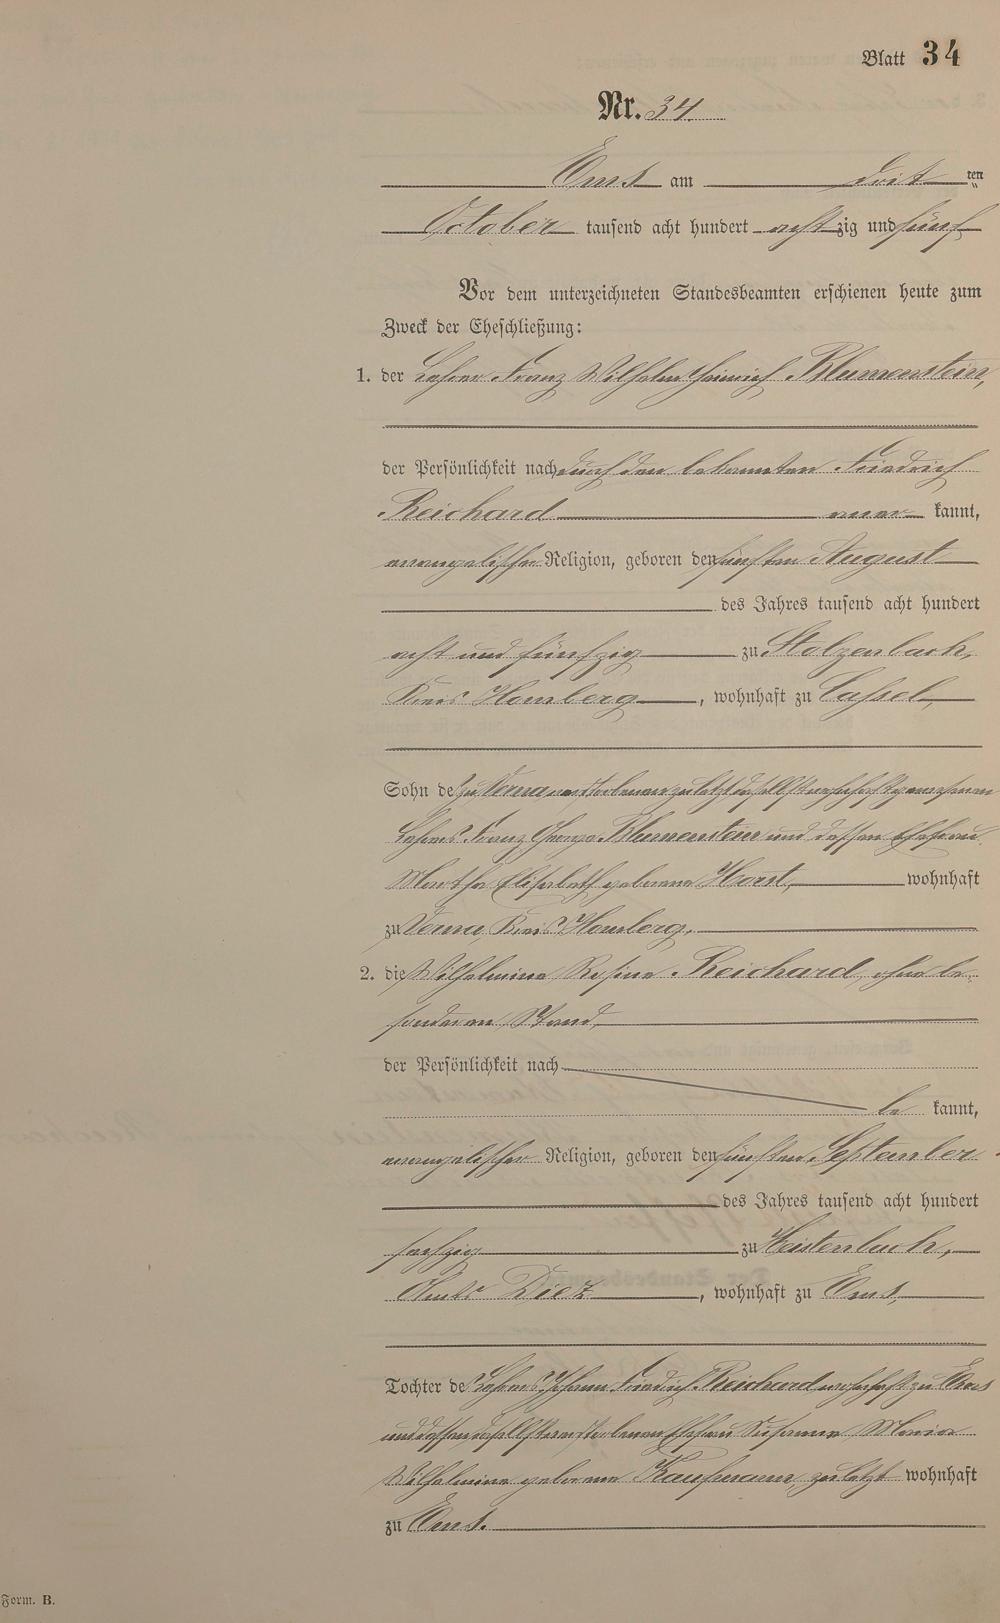 Blatt 34
Nr. 34
Ems am dritten
October tausend acht hundert achtzig und fünf
Vor dem unterzeichneten Standesbeamten erschienen heute zum
Zweck der Eheschließung:
1. der Lehrer Franz Wilhelm Heinrich Blumenstein,
der Persönlichkeit nach durch den bekannten Friedrich
Reichard anerkannt,
evangelischer Religion, geboren den fünften August
des Jahres tausend acht hundert
acht und fünfzig zu Stolzenbach,
Kreis Homberg, wohnhaft zu Cassel,
Sohn des zu Verna verstorbenen zuletzt daselbst wohnhaft gewesenen
Lehrers Franz George Blumenstein und dessen Ehefrau
Martha Elisabeth geborene Horst, wohnhaft
zu Verna, Kreis Homberg.
2. die Wilhelmine Rosine Reichard, ohne be-
sonderen Stand,
der Persönlichkeit nach
bekannt,
evangelischer Religion, geboren den fünften September
des Jahres tausend acht hundert
sechzig zu Heistenbach,
Amts Diez, wohnhaft zu Ems,
Tochter des Lehrers Johann Friedrich Reichard wohnhaft zu Ems
und dessen daselbst verstorbenen Ehefrau Susanne Maria
Wilhelmine geborene Kaufmann, zuletzt wohnhaft
zu Ems.
Form. B.